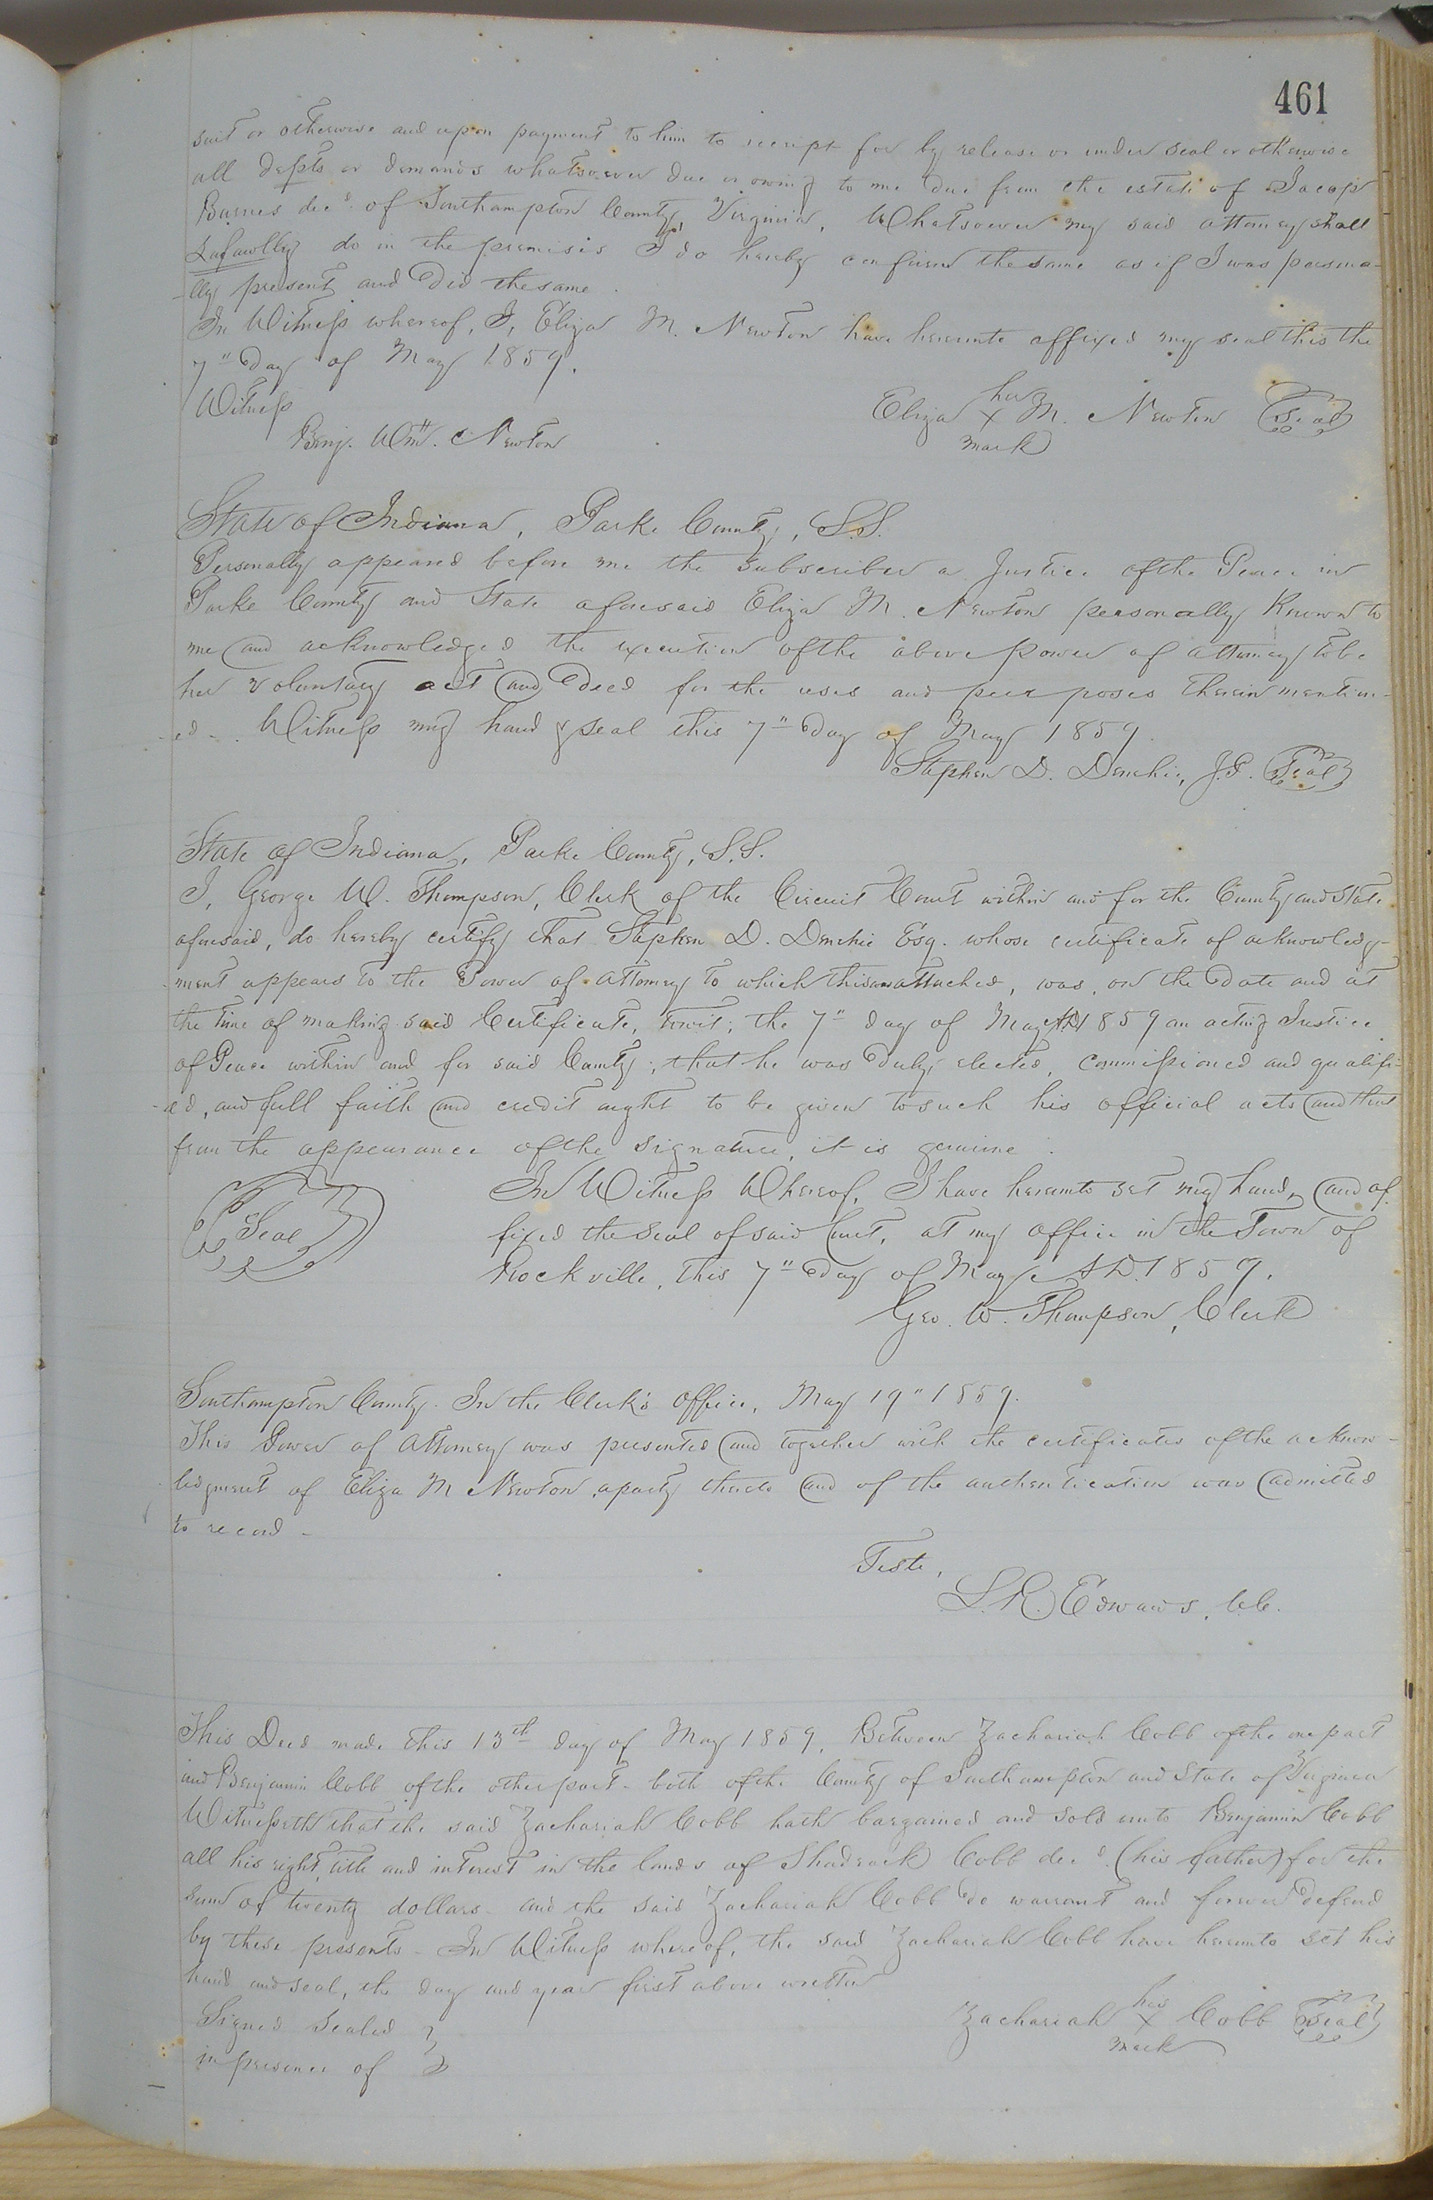 461
suit or otherwise and upon payment to him to receipt for by release or under seal or otherwise
all depts or demands whatsoever due or owing to me due from the estate of Jacop
Barnes decd. of Southampton County, Virginia, Whatsoever my said attorney shall
Lafawlly do in the premises I do hereby confirm the same as if I was persona-
-lly present and did the same.
In Witness whereof, I, Eliza M. Newton have hereunto affixed my seal this the
7" day of May 1859.
Witness
Eliza her X mark M. Newton Seal
Benj. Wm. Newton
State of Indiana, Parke County, S.S.
Personally appeared before me the subscriber a Justice of the Peace in
Parke County and State aforesaid Eliza M. Newton personally known to
me and acknowledged the execution of the above power of attorney to be
her voluntary act and deed for the uses and purposes therein mention-
-ed-. Witness my hand & seal this 7" day of May 1859
Stephen D. Denchie, J.P. Seal
State of Indiana, Parke County, S.S.
I, George W. Thompson, Clerk of the Circuit Court within and for the County and State
aforesaid, do hereby certify that Stephen D. Denchie Esq. whose certificate of acknowledg-
-ment appears to the Power of Attorney to which this attached, was, on the date and at
the time of making said Certificate, towit; the 7" day of May AD 1859 an acting Justice
of Peace within and for said County; that he was duly elected, commissioned and qualifi-
-ed, and full faith and credit aught to be given to such his official acts and that
from the appearance of the signature, it is genuine.
Seal
In Witness Whereof, I have hereunto set my hand, and af-
fixed the seal of said Court, at my office in the Town of
Rockville, this 7" day of May AD. 1859.
Geo. W. Thompson, Clerk
Southampton County. In the Clerk's office, May 19" 1859.
This Power of Attorney was presented and together with the certificates of the acknow-
ledgment of Eliza M Newton a party thereto and of the authentication was admitted
to record -
Teste,
L. R. Edwards, C.C.
This Deed made this 13th day of May 1859, Between Zachariah Cobb of the one part
and Benjamin Cobb of the other part - both of the County of Southampton and State of Virginia
Witnesseth that the said Zachariah Cobb hath bargained and sold unto Benjamin Cobb
all his right, title and interest in the lands of Shadrack Cobb decd. (his father) for the
sum of twenty dollars - and the said Zachariah Cobb do warrant and forever defend
by these presents - In Witness whereof, the said Zachariah Cobb have hereunto set his
hand and seal, the day and year first above written
Signed sealed
Zachariah his X mark Cobb Seal
in presence of